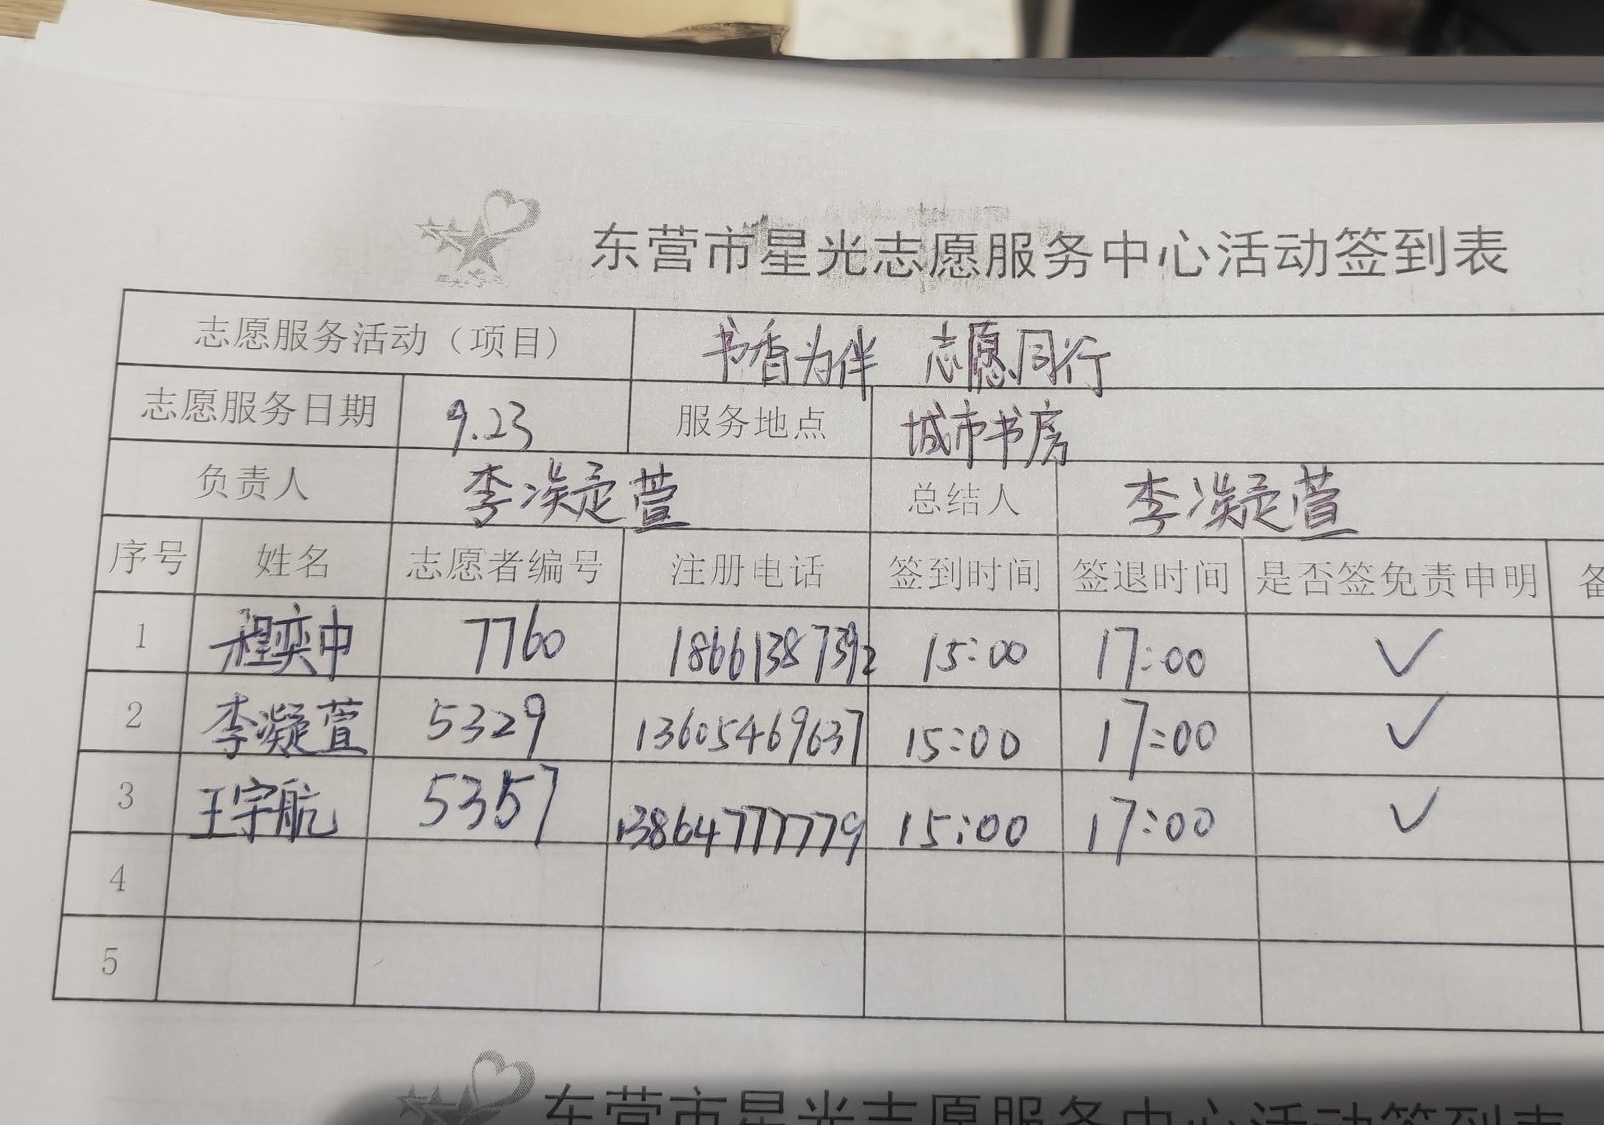 东营市星光志愿服务中心活动签到表
志愿服务活动（项目） 书香为伴 志愿同行
志愿服务日期 9.23 服务地点 城市书房
负责人 李凝萱 总结人 李凝萱
序号 姓名 志愿者编号 注册电话 签到时间 签退时间 是否签免责申明 备
1 程奕中 7760 18661387392 15:00 17:00 ✓
2 李凝萱 5329 13605469637 15:00 17:00 ✓
3 王宇航 5357 13864777779 15:00 17:00 ✓
4
5
东营市星光志愿服务中心活动签到表